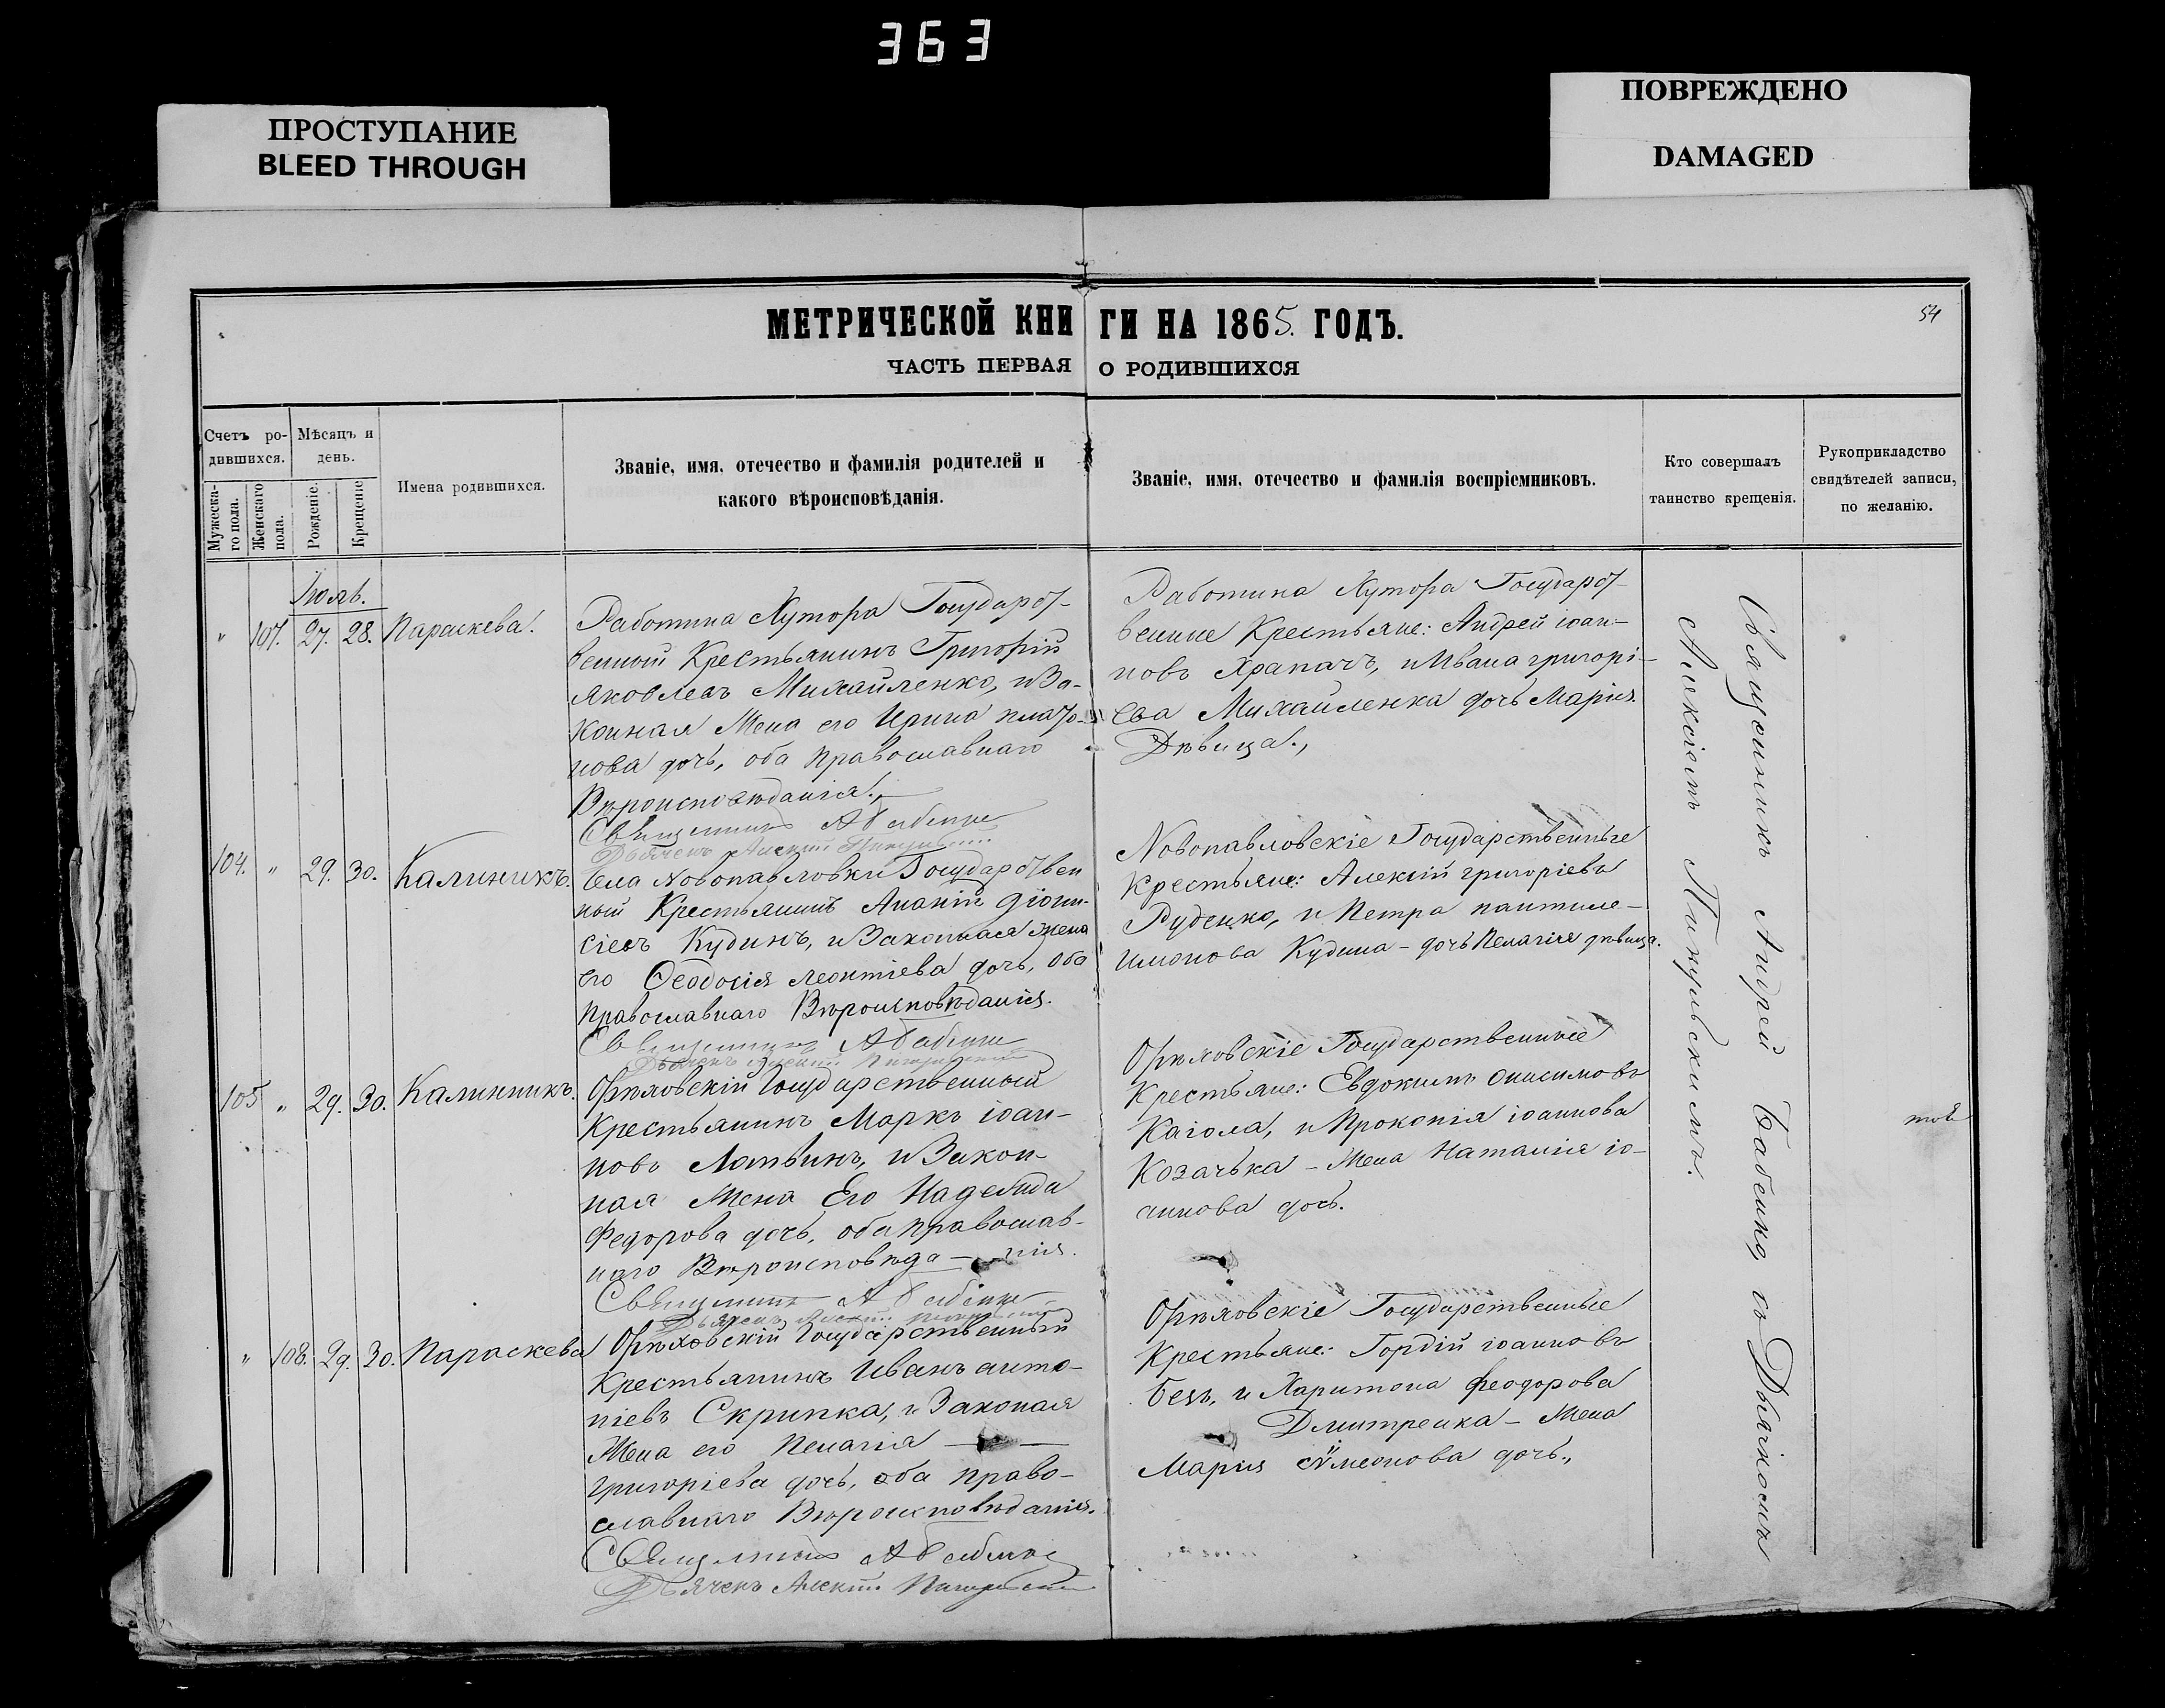 363
ПРОСТУПАНИЕ
BLEED THROUGH
ПОВРЕЖДЕНО
DAMAGED
МЕТРИЧЕСКОЙ КНИГИ НА 1865. ГОДЪ.
54
ЧАСТЬ ПЕРВАЯ О РОДИВШИХСЯ
Счетъ ро-
дившихся.
Мужеска-
го пола.
Женскаго
пола.
Мѣсяцъ и
день.
Рожденіе.
Крещеніе
Имена родившихся.
Званіе, имя, отечество и фамилія родителей и
какого вѣроисповѣданія.
Званіе, имя, отечество и фамилія воспріемниковъ.
Кто совершалъ
таинство крещенія.
Рукоприкладство
свидѣтелей записи,
по желанію.
Іюль.
" 107. 27. 28. Параскева.
Работина Хутора Государст-
венный Крестьянинъ Григорій
Яковлевъ Михайленко, и За-
конная Жена его Ирина плато-
нова дочь, оба православнаго
Вѣроисповѣданія.,
Священникъ А Бабенко
Дьячекъ Алексій Пикульскій
Работина Хутора Государст-
венные Крестьяне: Андрей іоан-
новъ Храпачъ, и Ивана григорі-
ева Михайленка дочь Марія.
Дѣвица.,
104. " 29. 30. Калиникъ.
Села Новопавловки Государствен
ный Крестьянинъ Ананій діони-
сіевъ Кудинъ, и Законная жена
его Ѳеодосія леонтіева дочь, оба
православнаго Вѣроисповѣданія.
Священникъ А Бабенко
Дьячекъ Алексій Пикульскій
Новопавловскіе Государственные
Крестьяне: Алексій григоріевъ
Руденко, и Петра пантиле-
имонова Кудина - дочь Пелагія дѣвица.
105 " 29. 30. Калинникъ.
Орѣховскій Государственный
Крестьянинъ Маркъ іоан-
новъ Литвинъ, и Закон-
ная Жена Его Надежда
Федорова дочь, оба православ-
наго Вѣроисповѣда - нія.
Священникъ А Бабенко
Дьячекъ Алексій Пикульскій
Орѣховскіе Государственные
Крестьяне: Евдокимъ онисимовъ
Каіола, и Прокопія іоаннова
Козачька - Жена Наталія іо-
аннова дочь.
" 108. 29. 30. Параскева
Орѣховскій Государственный
Крестьянинъ Иванъ анто-
ніевъ Скрипка, и Законная
Жена его Пелагія -
григоріева дочь, оба право-
славнаго Вѣроисповѣданія.
Священникъ А Бабенко
Дьячекъ Алексій Пикульскій
Орѣховскіе Государственные
Крестьяне: Гордій іоанновъ
Безъ, и Харитона феодорова
Дмитренка - Жена
Марія сѵмеонова дочь.,
Священникъ Андрей Бабенко, съ Дьячкомъ
Алексіемъ Пикульскимъ.